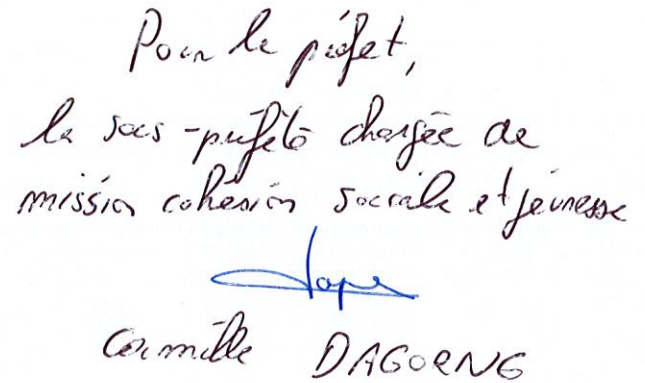 Pour le préfet,
la sous-préfète chargée de
mission cohésion sociale et jeunesse
Camille DAGORNE